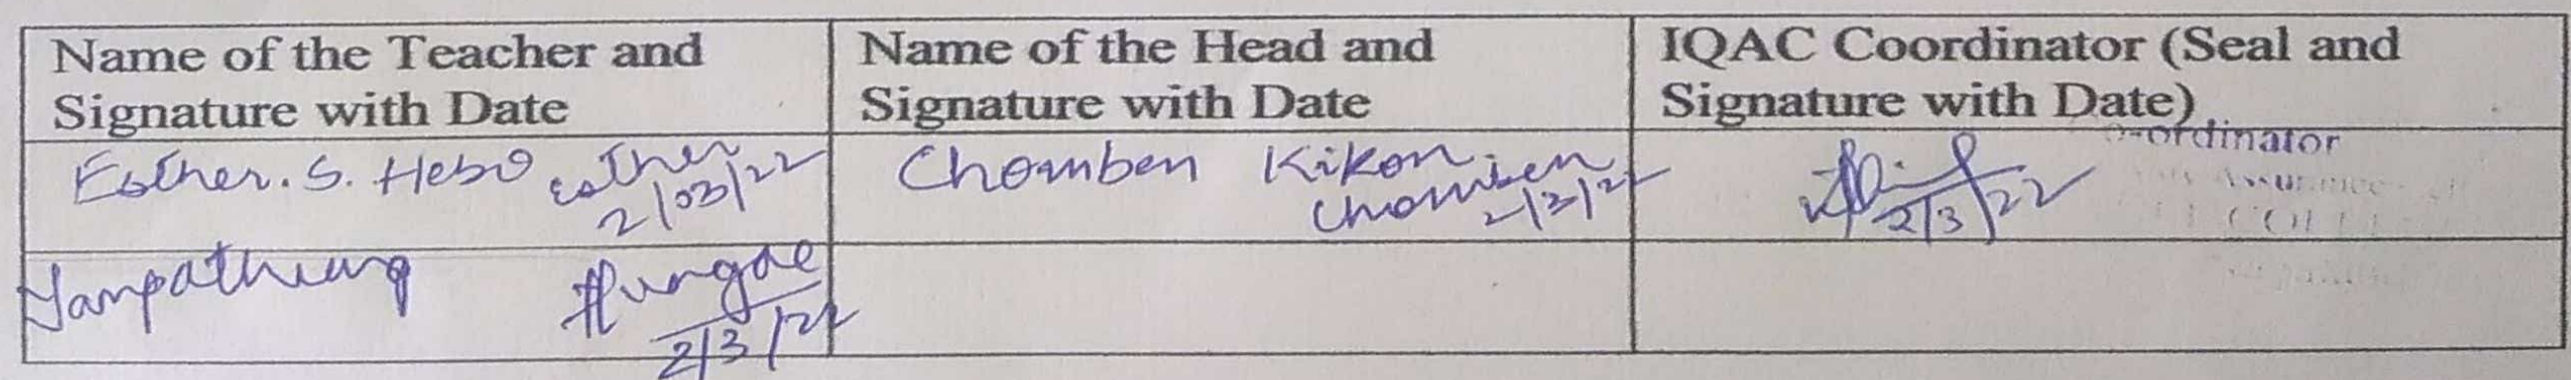 Name of the Teacher and
Signature with Date
Name of the Head and
Signature with Date
IQAC Coordinator (Seal and
Signature with Date)
Esther. S. Hebo Esther
2/03/22
Chomben Kikon
Chomben 2/3/22
2/3/22
o-ordinator
Assurance
COLL
Yanpathung
2/3/22